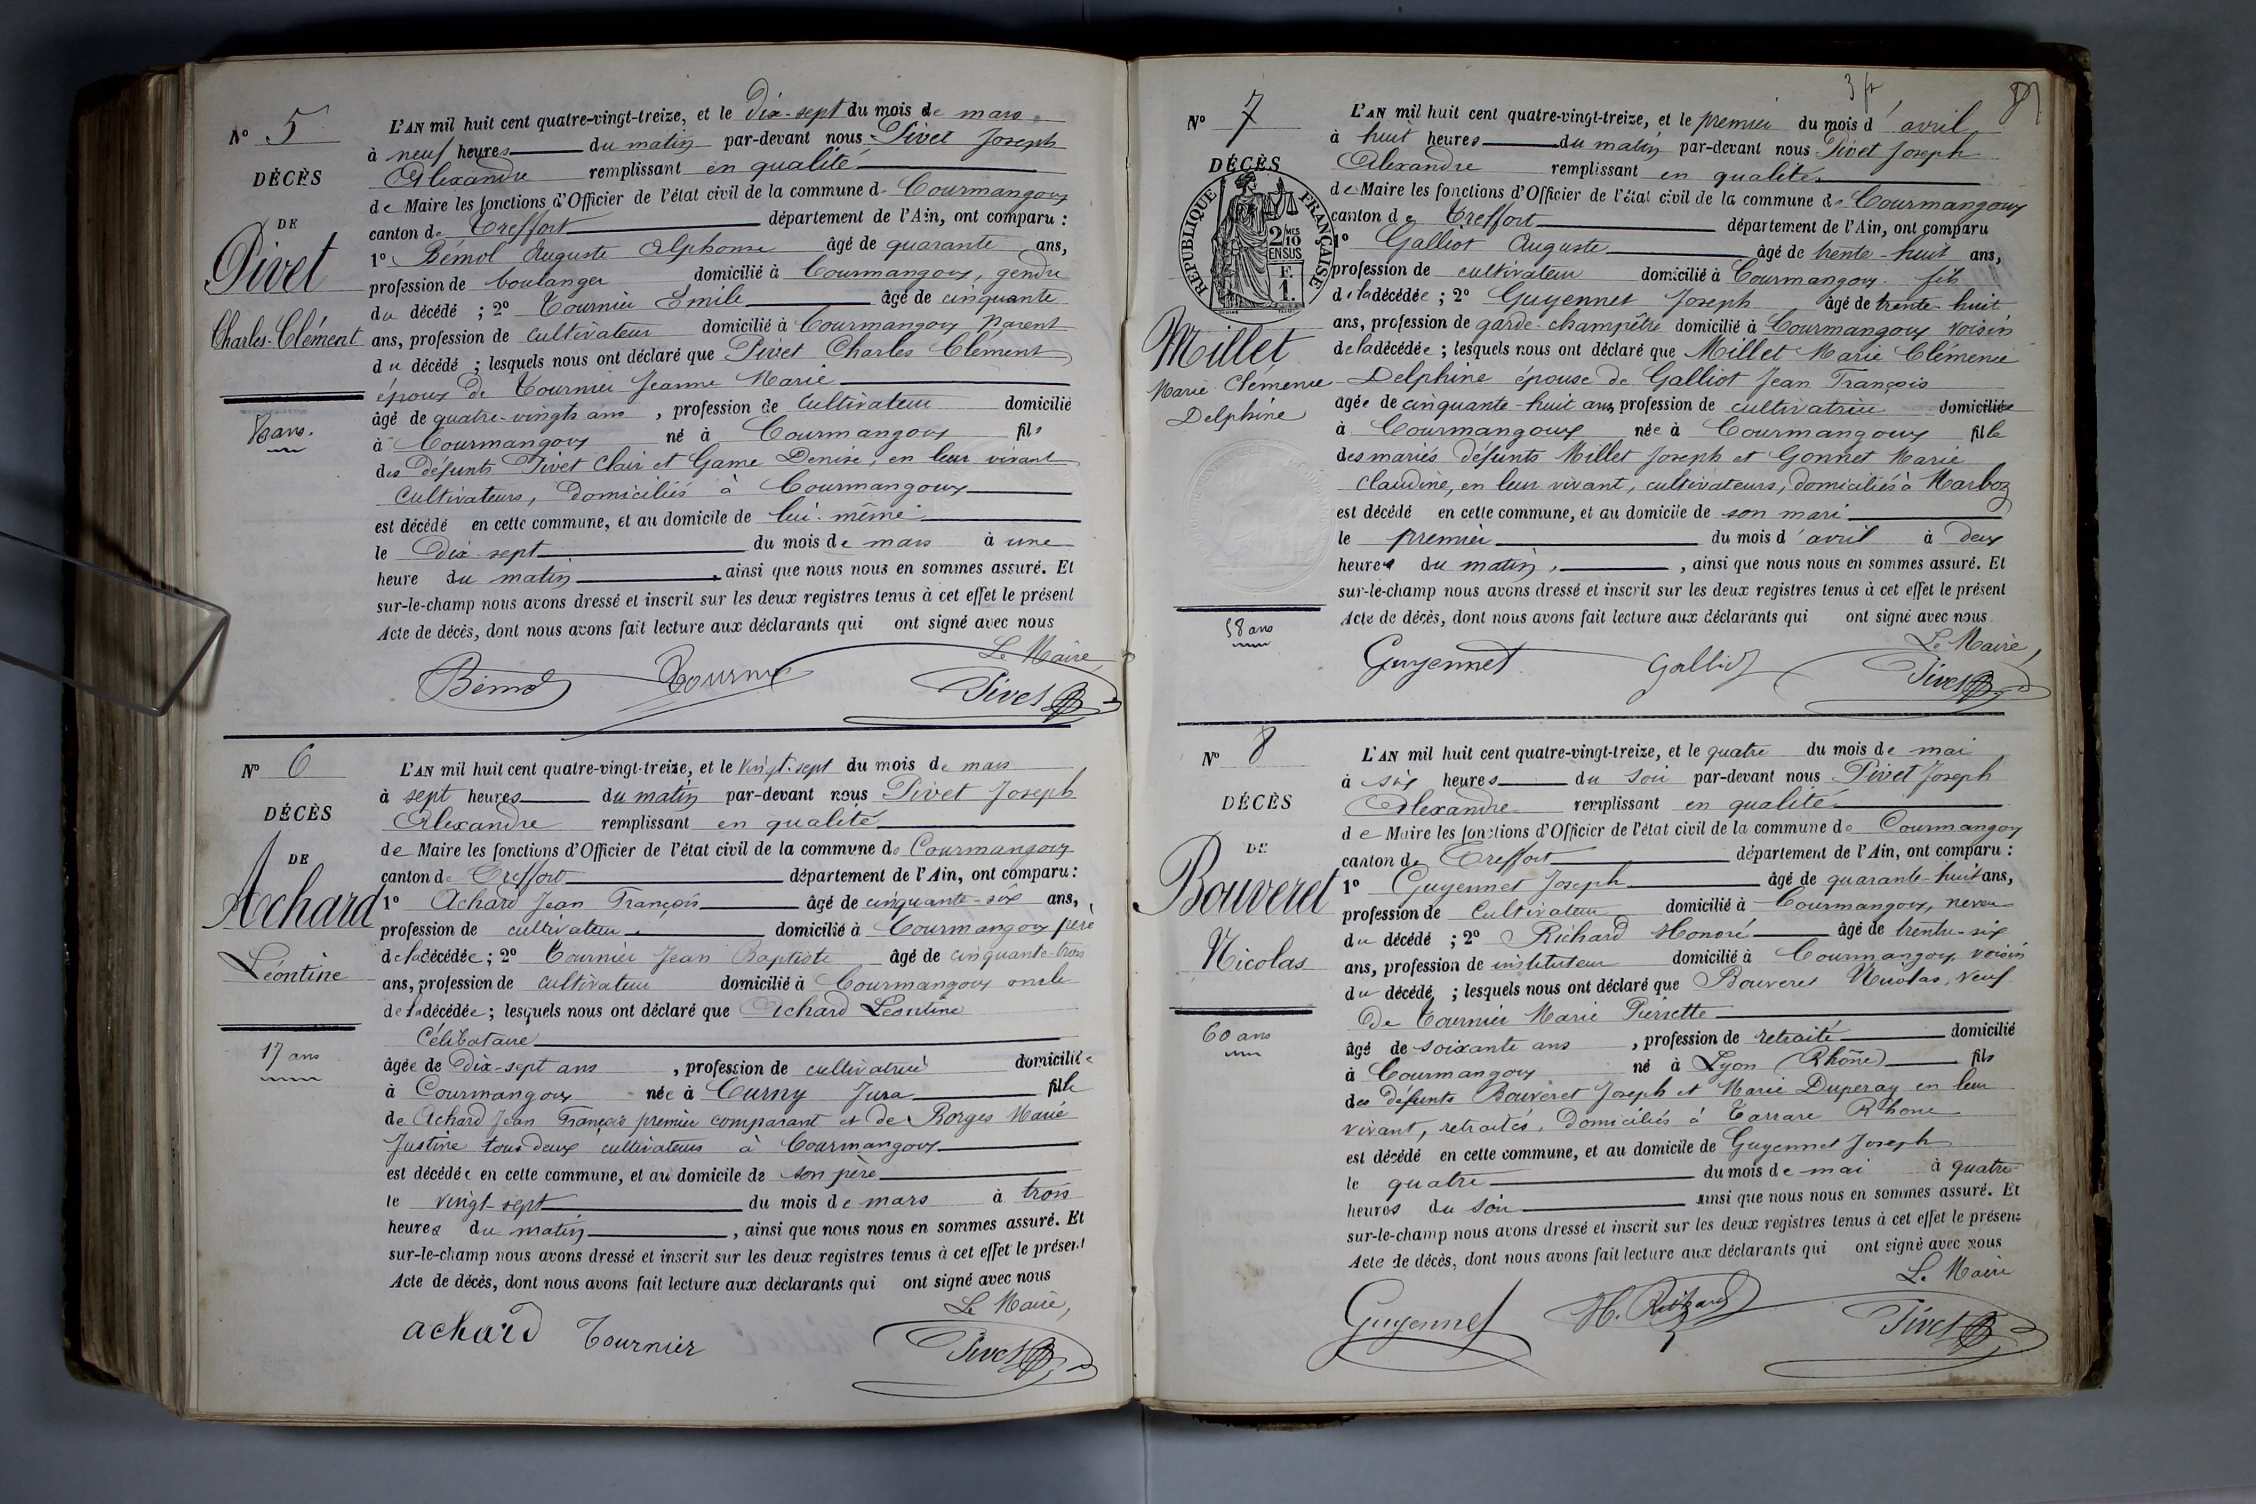 N° 5
DÉCÈS
DE
Pivet
Charles-Clément
80 ans.
L'AN mil huit cent quatre-vingt-treize, et le dix-sept du mois de mars
à neuf heures du matin par-devant nous Pivet Joseph
Alexandre remplissant en qualité
de Maire les fonctions d'Officier de l'état civil de la commune de Courmangoux
canton de Treffort département de l'Ain, ont comparu :
1° Bémol Auguste Alphonse âgé de quarante ans,
profession de boulanger domicilié à Courmangoux, gendre
du décédé ; 2° Tournier Émile âgé de cinquante
ans, profession de cultivateur domicilié à Courmangoux parent
du décédé ; lesquels nous ont déclaré que Pivet Charles Clément
époux de Tournier Jeanne Marie
âgé de quatre-vingts ans, profession de cultivateur domicilié
à Courmangoux né à Courmangoux fils
des défunts Pivet Clair et Game Denise, en leur vivant
cultivateurs, domiciliés à Courmangoux
est décédé en cette commune, et au domicile de lui-même
le dix-sept du mois de mars à une
heure du matin, ainsi que nous nous en sommes assuré. Et
sur-le-champ nous avons dressé et inscrit sur les deux registres tenus à cet effet le présent
Acte de décès, dont nous avons fait lecture aux déclarants qui ont signé avec nous
Le Maire,
Bémol Tournier Pivet
N° 6
DÉCÈS
DE
Achard
Léontine
17 ans
L'AN mil huit cent quatre-vingt-treize, et le vingt-sept du mois de mars
à sept heures du matin par-devant nous Pivet Joseph
Alexandre remplissant en qualité
de Maire les fonctions d'Officier de l'état civil de la commune de Courmangoux
canton de Treffort département de l'Ain, ont comparu :
1° Achard Jean François âgé de cinquante-six ans,
profession de cultivateur domicilié à Courmangoux père
de la décédée ; 2° Tournier Jean Baptiste âgé de cinquante-trois
ans, profession de cultivateur domicilié à Courmangoux oncle
de la décédée ; lesquels nous ont déclaré que Achard Léontine
Célibataire
âgée de dix-sept ans, profession de cultivatrice domiciliée
à Courmangoux née à Curny Jura fille
de Achard Jean François premier comparant et de Borges Marie
Justine tous deux cultivateurs à Courmangoux
est décédée en cette commune, et au domicile de son père
le vingt-sept du mois de mars à trois
heures du matin, ainsi que nous nous en sommes assuré. Et
sur-le-champ nous avons dressé et inscrit sur les deux registres tenus à cet effet le présent
Acte de décès, dont nous avons fait lecture aux déclarants qui ont signé avec nous
Le Maire,
achard Tournier Pivet
3 fr
N° 7
DÉCÈS
RÉPUBLIQUE FRANÇAISE
2 MES
10
EN SUS
F.
1.
Millet
Marie Clémence
Delphine
58 ans
L'AN mil huit cent quatre-vingt-treize, et le premier du mois d'avril
à huit heures du matin par-devant nous Pivet Joseph
Alexandre remplissant en qualité
de Maire les fonctions d'Officier de l'état civil de la commune de Courmangoux
canton de Treffort département de l'Ain, ont comparu
1° Galliot Auguste âgé de trente-huit ans,
profession de cultivateur domicilié à Courmangoux fils
de la décédée ; 2° Guyennet Joseph âgé de trente-huit
ans, profession de garde-champêtre domicilié à Courmangoux voisin
de la décédée ; lesquels nous ont déclaré que Millet Marie Clémence
Delphine épouse de Galliot Jean François
âgée de cinquante-huit ans profession de cultivatrice domiciliée
à Courmangoux née à Courmangoux fille
des mariés défunts Millet Joseph et Gonnet Marie
Claudine, en leur vivant, cultivateurs, domiciliés à Marboz
est décédé en cette commune, et au domicile de son mari
le premier du mois d'avril à deux
heures du matin, ainsi que nous nous en sommes assuré. Et
sur-le-champ nous avons dressé et inscrit sur les deux registres tenus à cet effet le présent
Acte de décès, dont nous avons fait lecture aux déclarants qui ont signé avec nous
Le Maire,
Guyennet Galliot Pivet
N° 8
DÉCÈS
DE
Bouveret
Nicolas
60 ans
L'AN mil huit cent quatre-vingt-treize, et le quatre du mois de mai
à six heures du soir par-devant nous Pivet Joseph
Alexandre remplissant en qualité
de Maire les fonctions d'Officier de l'état civil de la commune de Courmangoux
canton de Treffort département de l'Ain, ont comparu :
1° Guyennet Joseph âgé de quarante-huit ans,
profession de cultivateur domicilié à Courmangoux, neveu
du décédé ; 2° Richard Honoré âgé de trente-six
ans, profession de instituteur domicilié à Courmangoux voisin
du décédé ; lesquels nous ont déclaré que Bouveret Nicolas, veuf
de Tournier Marie Pierrette
âgé de soixante ans, profession de retraité domicilié
à Courmangoux né à Lyon (Rhône) fils
des défunts Bouveret Joseph et Marie Duperay en leur
vivant, retraités, domiciliés à Tarrare Rhone
est décédé en cette commune, et au domicile de Guyennet Joseph
le quatre du mois de mai à quatre
heures du soir ainsi que nous nous en sommes assuré. Et
sur-le-champ nous avons dressé et inscrit sur les deux registres tenus à cet effet le présent
Acte de décès, dont nous avons fait lecture aux déclarants qui ont signé avec nous
Le Maire
Guyennet H. Richard Pivet